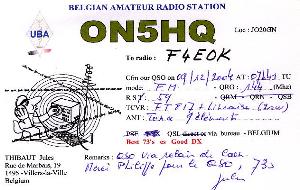 BELGIAN AMATEUR RADIO STATION
UBA
ON5HQ
Loc : JO20GN
To radio : F4EOK
Cfm our QSO on 09/12/2004 at
mode : F.M. QRG : 144 (Mhz)
RST : 59 QRM : QRN :
TCVR : FT817 + Linéaire
ANT : Tona 9 éléments
PSE QSL direct via bureau - BELGIUM
Best 73's es Good DX
THIBAUT Jules
Rue de Marbais, 19
1495 -Villers-la-Ville
Belgium
Remarks : QSO via relais de
Merci Philippe pour le QSO, 73s
Jules